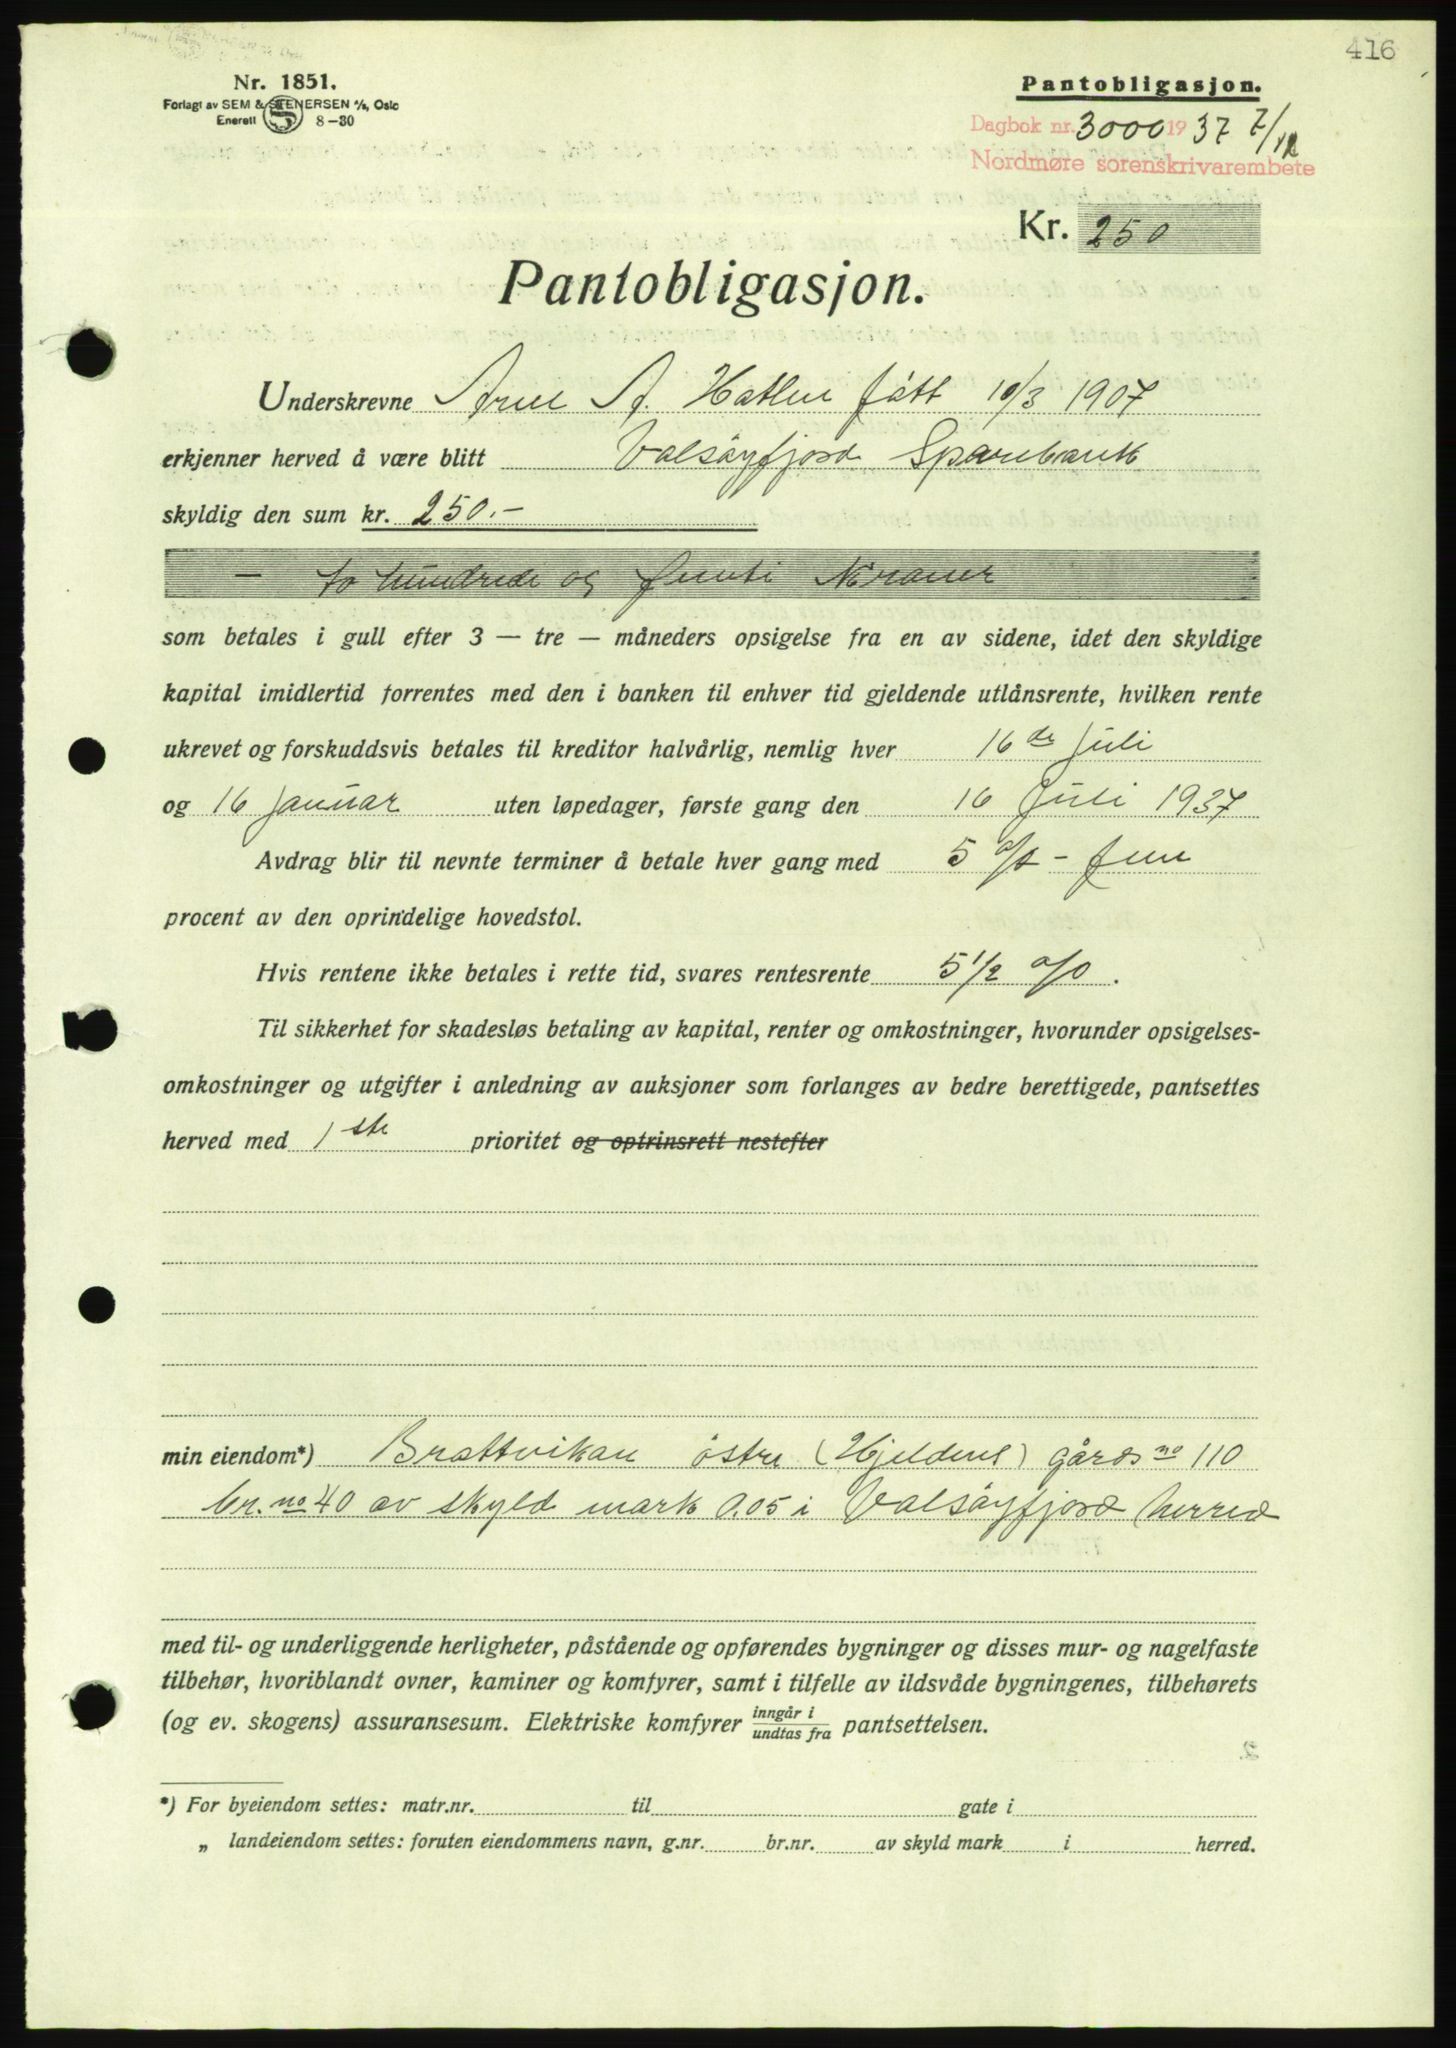 416
Nr. 1851.
Forlagt av SEM & STENERSEN A/S, Oslo
Enerett 8-30
Pantobligasjon.
Dagbok nr. 3000 1937 7/12
Nordmøre sorenskrivarembete
Kr. 250
Pantobligasjon.
Underskrevne Arne A. Hatlen født 10/3 1907
erkjenner herved å være blitt Valsøyfjord Sparebank
skyldig den sum kr. 250.-
- to hundrede og femti Kroner
som betales i gull efter 3 — tre — måneders opsigelse fra en av sidene, idet den skyldige
kapital imidlertid forrentes med den i banken til enhver tid gjeldende utlånsrente, hvilken rente
ukrevet og forskuddsvis betales til kreditor halvårlig, nemlig hver 16de Juli
og 16 Januar uten løpedager, første gang den 16 Juli 1937
Avdrag blir til nevnte terminer å betale hver gang med 5 % - fem
procent av den oprindelige hovedstol.
Hvis rentene ikke betales i rette tid, svares rentesrente 5 1/2 %.
Til sikkerhet for skadesløs betaling av kapital, renter og omkostninger, hvorunder opsigelses-
omkostninger og utgifter i anledning av auksjoner som forlanges av bedre berettigede, pantsettes
herved med 1ste prioritet og optrinsrett nestefter
min eiendom*) Brattvikan östre (Hjeldene) gårds no 110
br. no 40 av skyld mark 0.05 i Valsöyfjord herred
med til- og underliggende herligheter, påstående og opførendes bygninger og disses mur- og nagelfaste
tilbehør, hvoriblandt ovner, kaminer og komfyrer, samt i tilfelle av ildsvåde bygningenes, tilbehørets
(og ev. skogens) assuransesum. Elektriske komfyrer inngår i / undtas fra pantsettelsen.
*) For byeiendom settes: matr.nr. til gate i
„ landeiendom settes: foruten eiendommens navn, g.nr. br.nr. av skyld mark i herred.